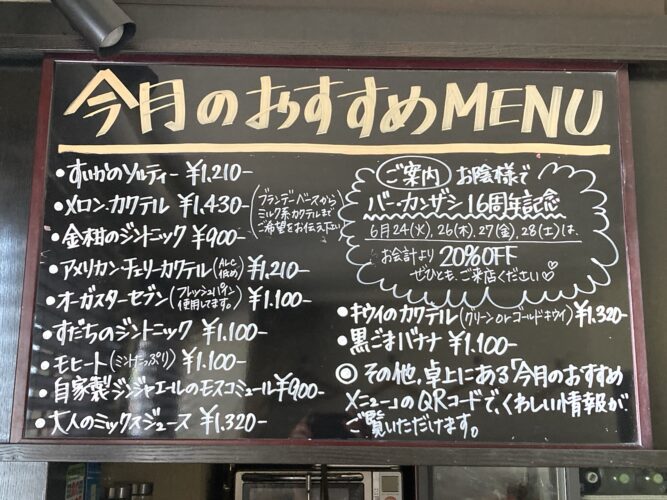 今月のおすすめMENU
・すいかのソルティー ¥1,210-
・メロン・カクテル ¥1,430-
(ブランデーベースから
ミルク系カクテルまで
ご希望をお伝え下さい)
・金柑のジントニック ¥900-
・アメリカン・チェリーカクテル (ALC低め) ¥1,210-
・オーガスターセブン (フレッシュパイン使用してます。) ¥1.100-
・すだちのジントニック ¥1.100-
・モヒート(ミントたっぷり) ¥1.100-
・自家製ジンジャエールのモスコミュール ¥900-
・大人のミックスジュース ¥1.320-
ご案内 お陰様で
バー・カンザシ 16周年記念
6月24(火), 26(木), 27(金), 28(土)は、
お会計より 20%OFF
ぜひとも、ご来店ください♡
・キウイのカクテル(グリーン or ゴールドキウイ) ¥1,320-
・黒ごまバナナ ¥1.100-
◎ その他、卓上にある「今月のおすすめ
メニュー」のQRコードで、くわしい情報が、
ご覧いただけます。